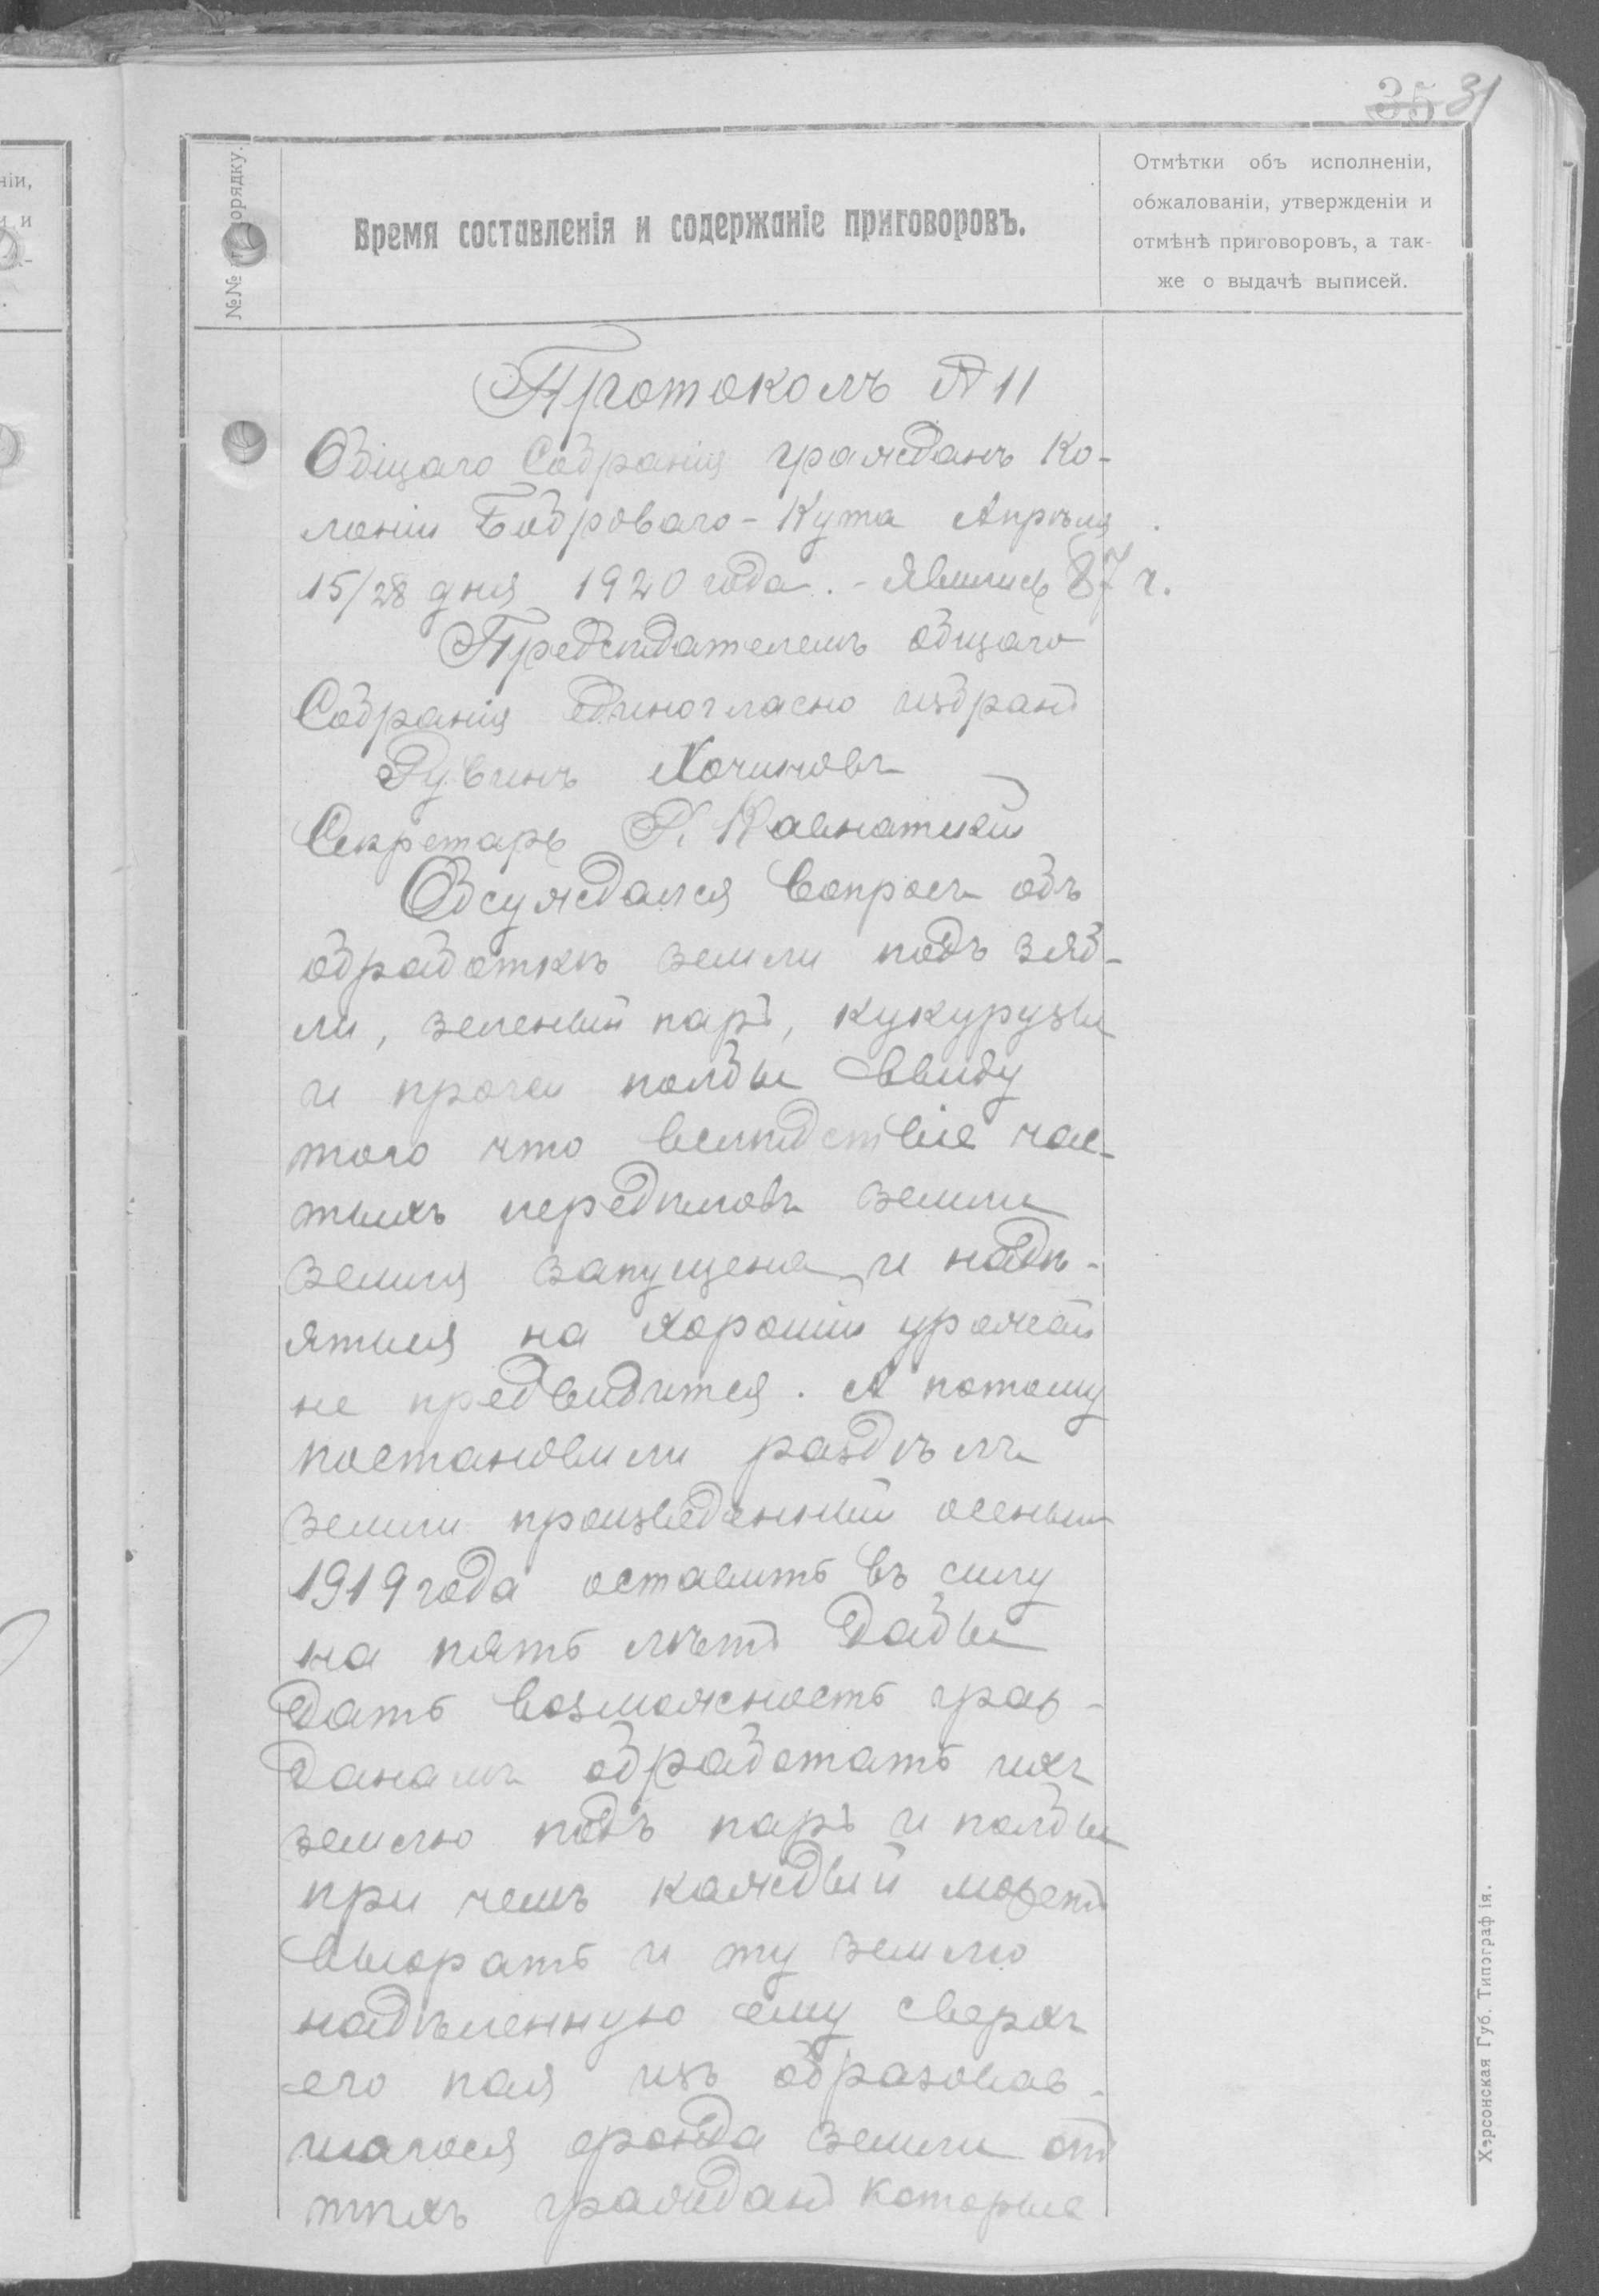 35 31
№№ порядку.
Время составленія и содержаніе приговоровъ.
Отмѣтки объ исполненіи,
обжалованіи, утвержденіи и
отмѣнѣ приговоровъ, а так-
же о выдачѣ выписей.
Протоколъ № 11
Общаго Собранія гражданъ Ко-
лоніи Боброваго-Кута Апрѣля
15/28 дня 1920 года. - Явились 87 ч.
Предсѣдателемъ общаго
Собранія единогласно избранъ
Рувинъ
Секретарь
Обсуждался вопросъ объ
обработкѣ земли подъ зяб-
ли, зеленый паръ, кукурузы
и прочей толбы ввиду
того что вслѣдствіе час-
тыхъ передѣловъ земли
земля запущена и надѣ-
яться на хорошій урожай
не предвидится. А потому
постановили раздѣлъ
земли произведенный осенью
1919 года оставить въ силу
на пять лѣтъ дабы
дать возможность граж-
данамъ обработать ихъ
землю подъ паръ и толбы
при чемъ каждый можетъ
выорать и ту землю
надѣленную ему сверхъ
его пая изъ образовав-
шагося фонда земли отъ
тѣхъ гражданъ которые
Херсонская Губ. Типографія.